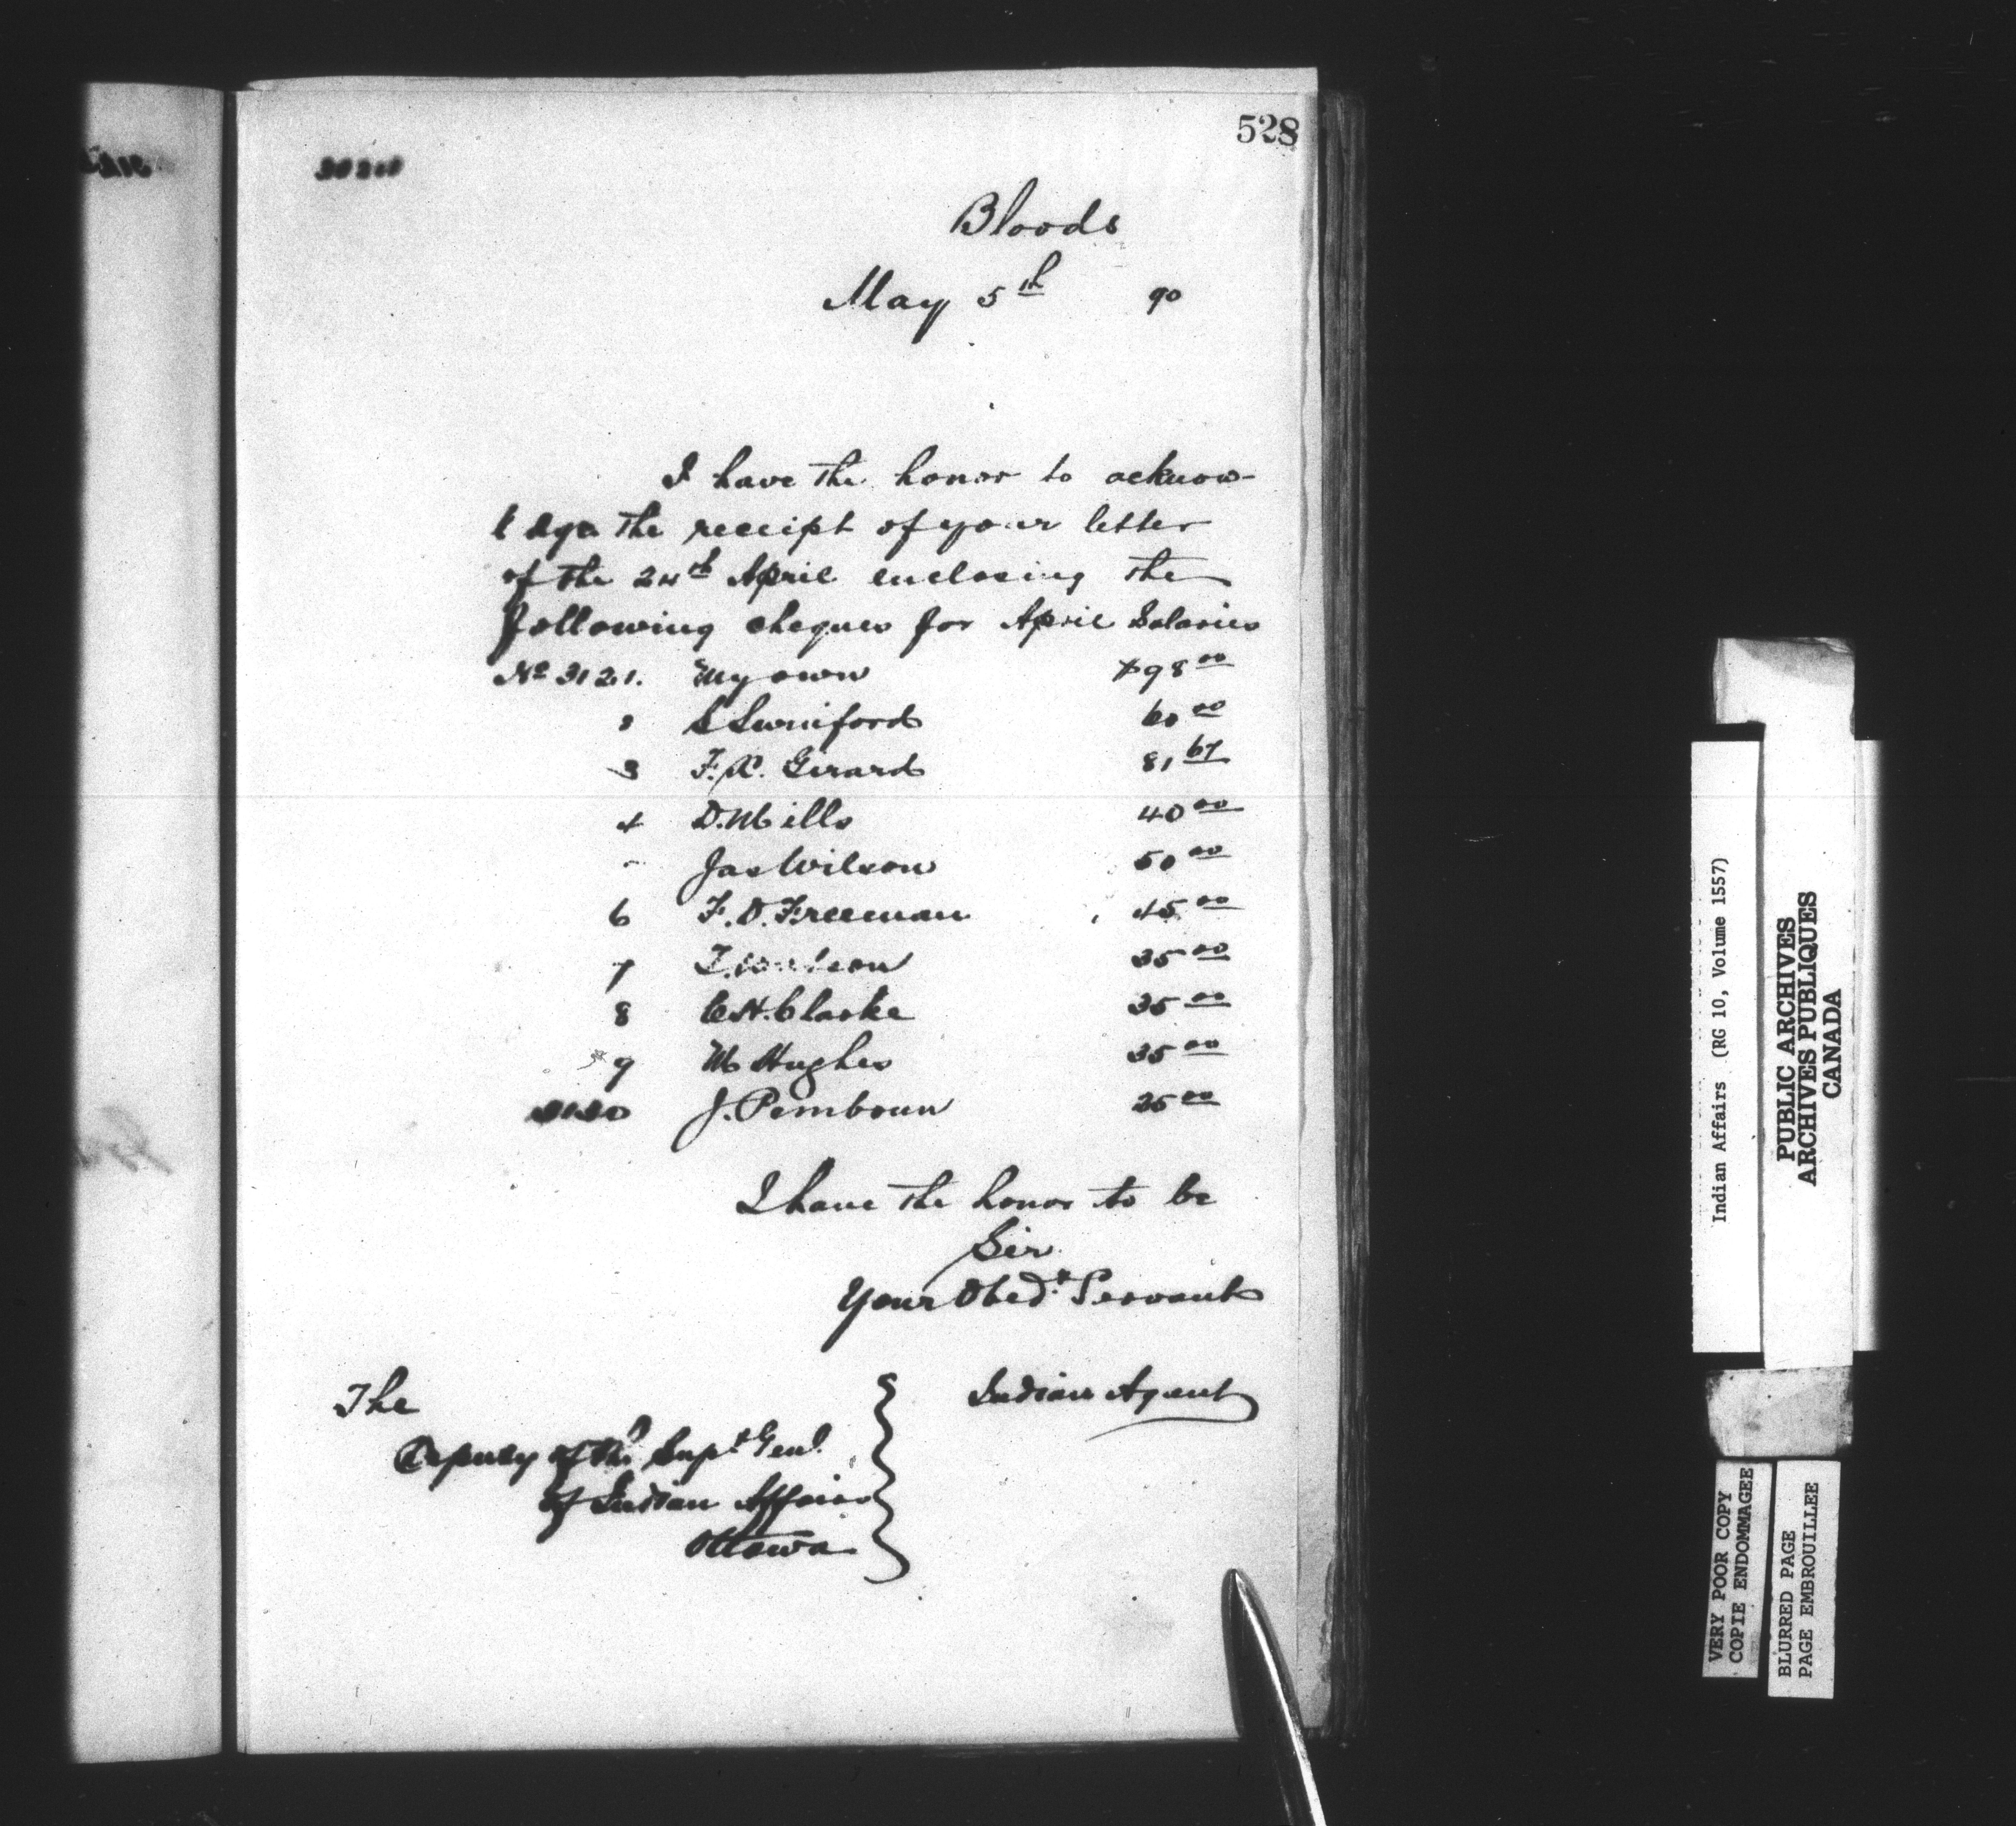 528
Bloods
May 5th 90
I have the honor to acknow-
ledge the receipt of your letter
of the 24th April enclosing the
following cheques for April Salaries
No 3121. My own $98 00
2 S Swinford 60 00
3 F.X. Girard 81 67
4 D. Mills 40 00
Jas Wilson 50 00
6 F.D. Freeman 45 00
7 35 00
8 C.H. Clarke 35 00
9 M Hughes 35 00
3130 J. Pembrun 25 00
I have the honor to be
Sir
Your Obedt Servant
Indian Agent
The
Deputy of the Supt Genl
of Indian Affairs
Ottawa
Indian Affairs (RG 10, Volume 1557)
PUBLIC ARCHIVES
ARCHIVES PUBLIQUES
CANADA
VERY POOR COPY
COPIE ENDOMMAGEE
BLURRED PAGE
PAGE EMBROUILLEE